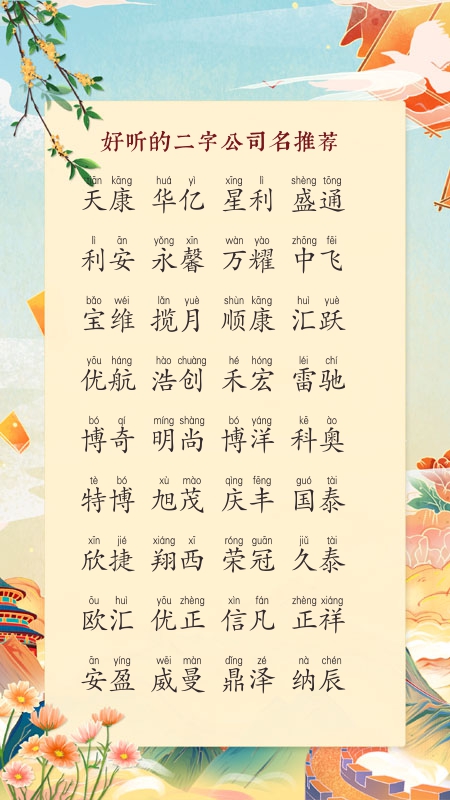 好听的二字公司名推荐
tiān kāng huá yì xīng lì shèng tōng
天康 华亿 星利 盛通
lì ān yǒng xīn wàn yào zhōng fēi
利安 永馨 万耀 中飞
bǎo wéi lǎn yuè shùn kāng huì yuè
宝维 揽月 顺康 汇跃
yōu háng hào chuàng hé hóng léi chí
优航 浩创 禾宏 雷驰
bó qí míng shàng bó yáng kē ào
博奇 明尚 博洋 科奥
tè bó xù mào qìng fēng guó tài
特博 旭茂 庆丰 国泰
xīn jié xiáng xī róng guān jiǔ tài
欣捷 翔西 荣冠 久泰
ōu huì yōu zhèng xìn fán zhèng xiáng
欧汇 优正 信凡 正祥
ān yíng wēi màn dǐng zé nà chén
安盈 威曼 鼎泽 纳辰